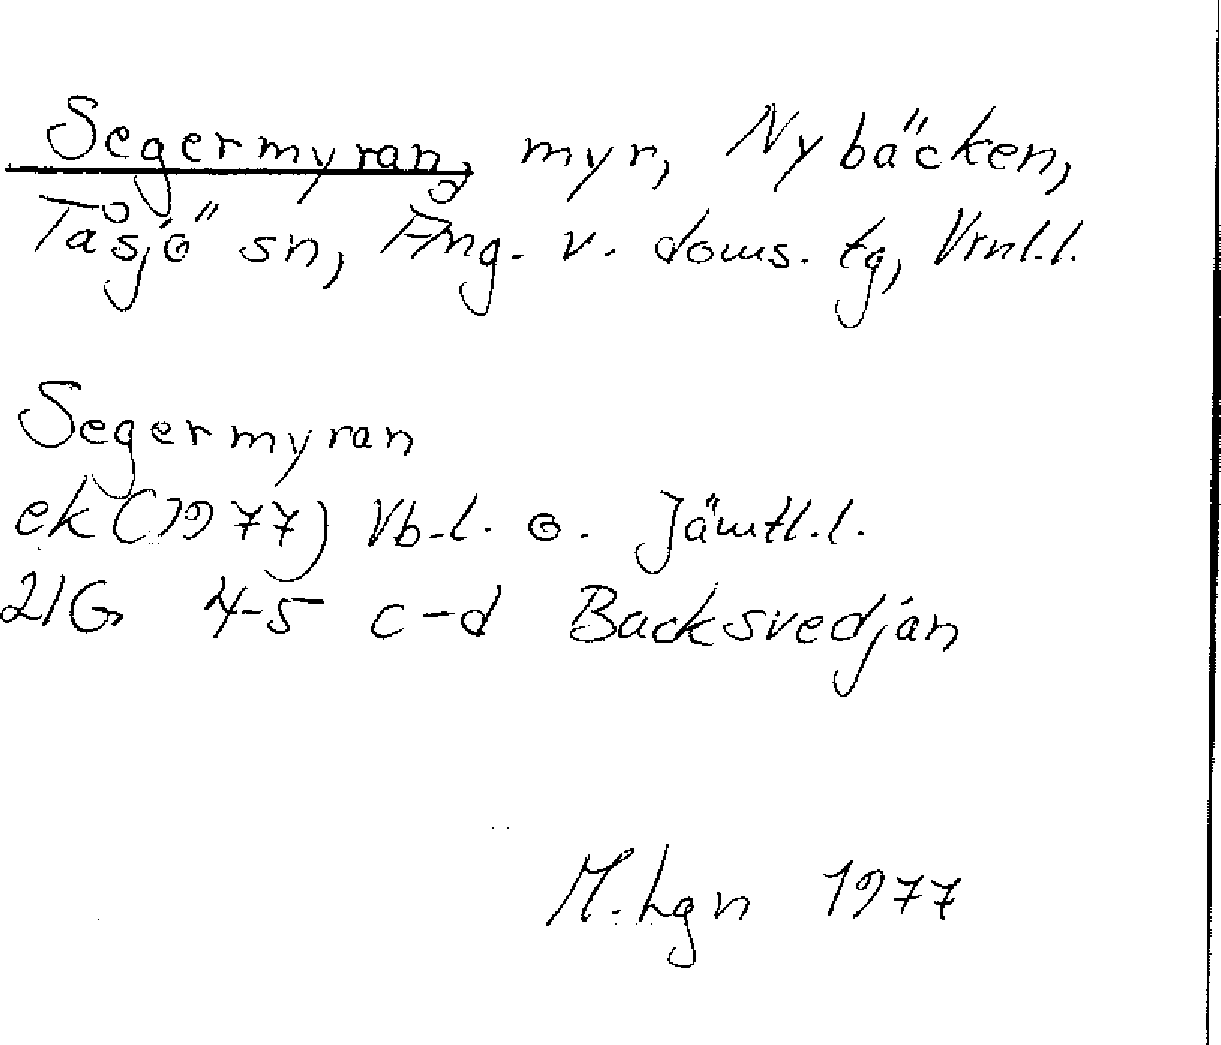 Segermyran, myr, Nybäcken,
Tåsjö sn, Ång. v. doms. tg, Vrnl.l.
Segermyran
ek (1977) Vb.l. o. Jämtl.l.
21G 4-5 c-d Backsvedjan
M. Lgn 1977